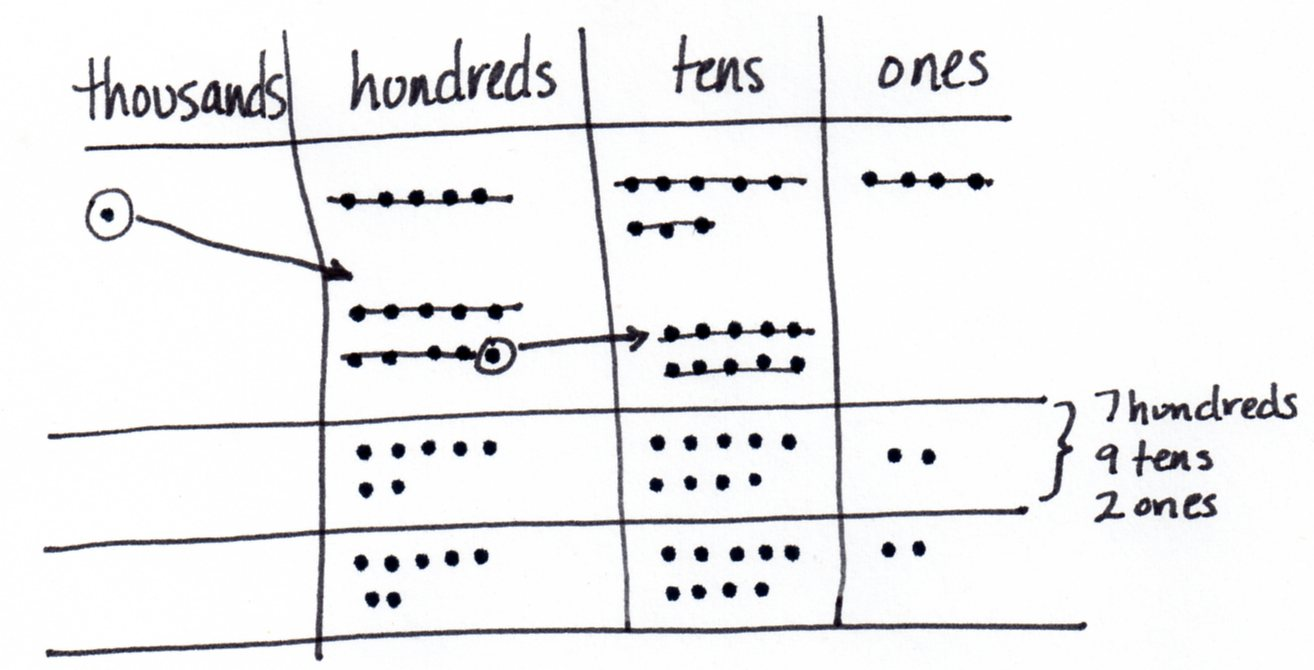 thousands hundreds tens ones
7 hundreds
9 tens
2 ones